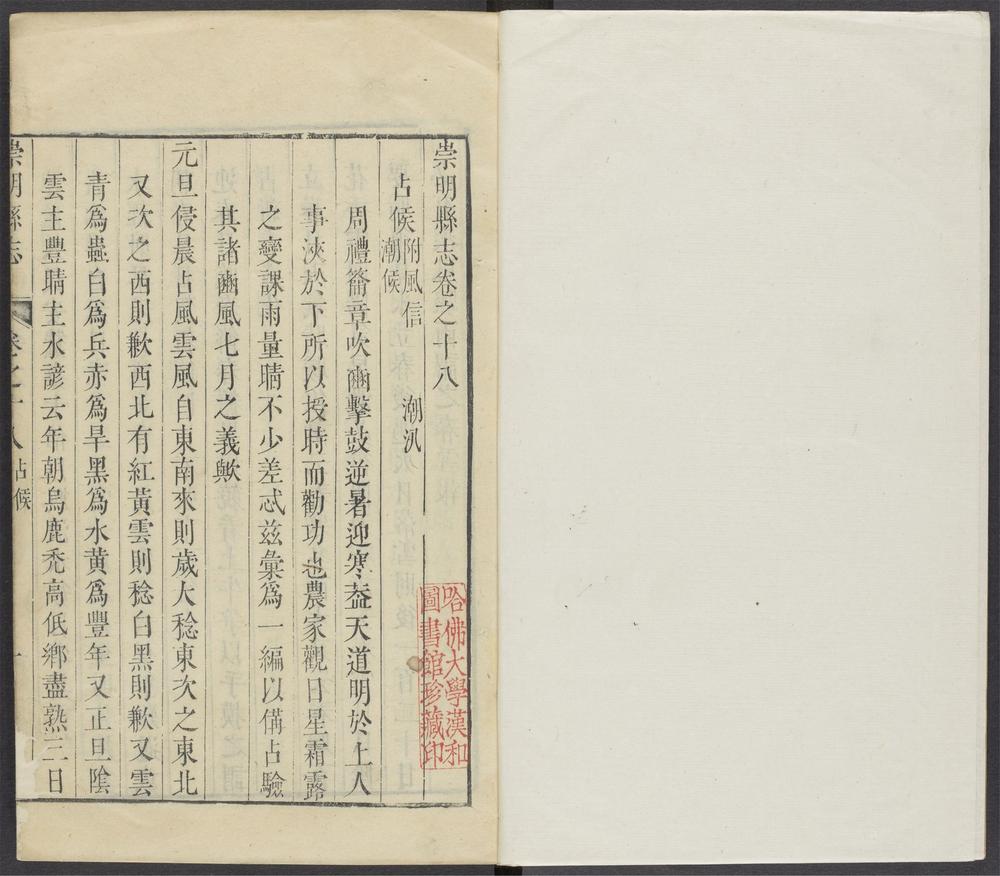 崇明縣志卷之十八
占候附風信 潮汛
潮候
周禮籥章吹豳擊鼓逆暑迎寒葢天道明於上人
事浹於下所以授時而勸功也農家觀日星霜露
之變課雨量晴不少差忒茲彙爲一編以偹占驗
其諸豳風七月之義歟
元旦侵晨占風雲風自東南來則歲大稔東次之東北
又次之西則歉西北有紅黃雲則稔白黑則歉又雲
青爲蟲白爲兵赤爲旱黑爲水黃爲豐年又正旦陰
雲主豐晴主水諺云年朝烏鹿禿高低鄉盡熟三日
崇明縣志 卷之十八占候 一
哈佛大學漢和
圖書館珍藏印